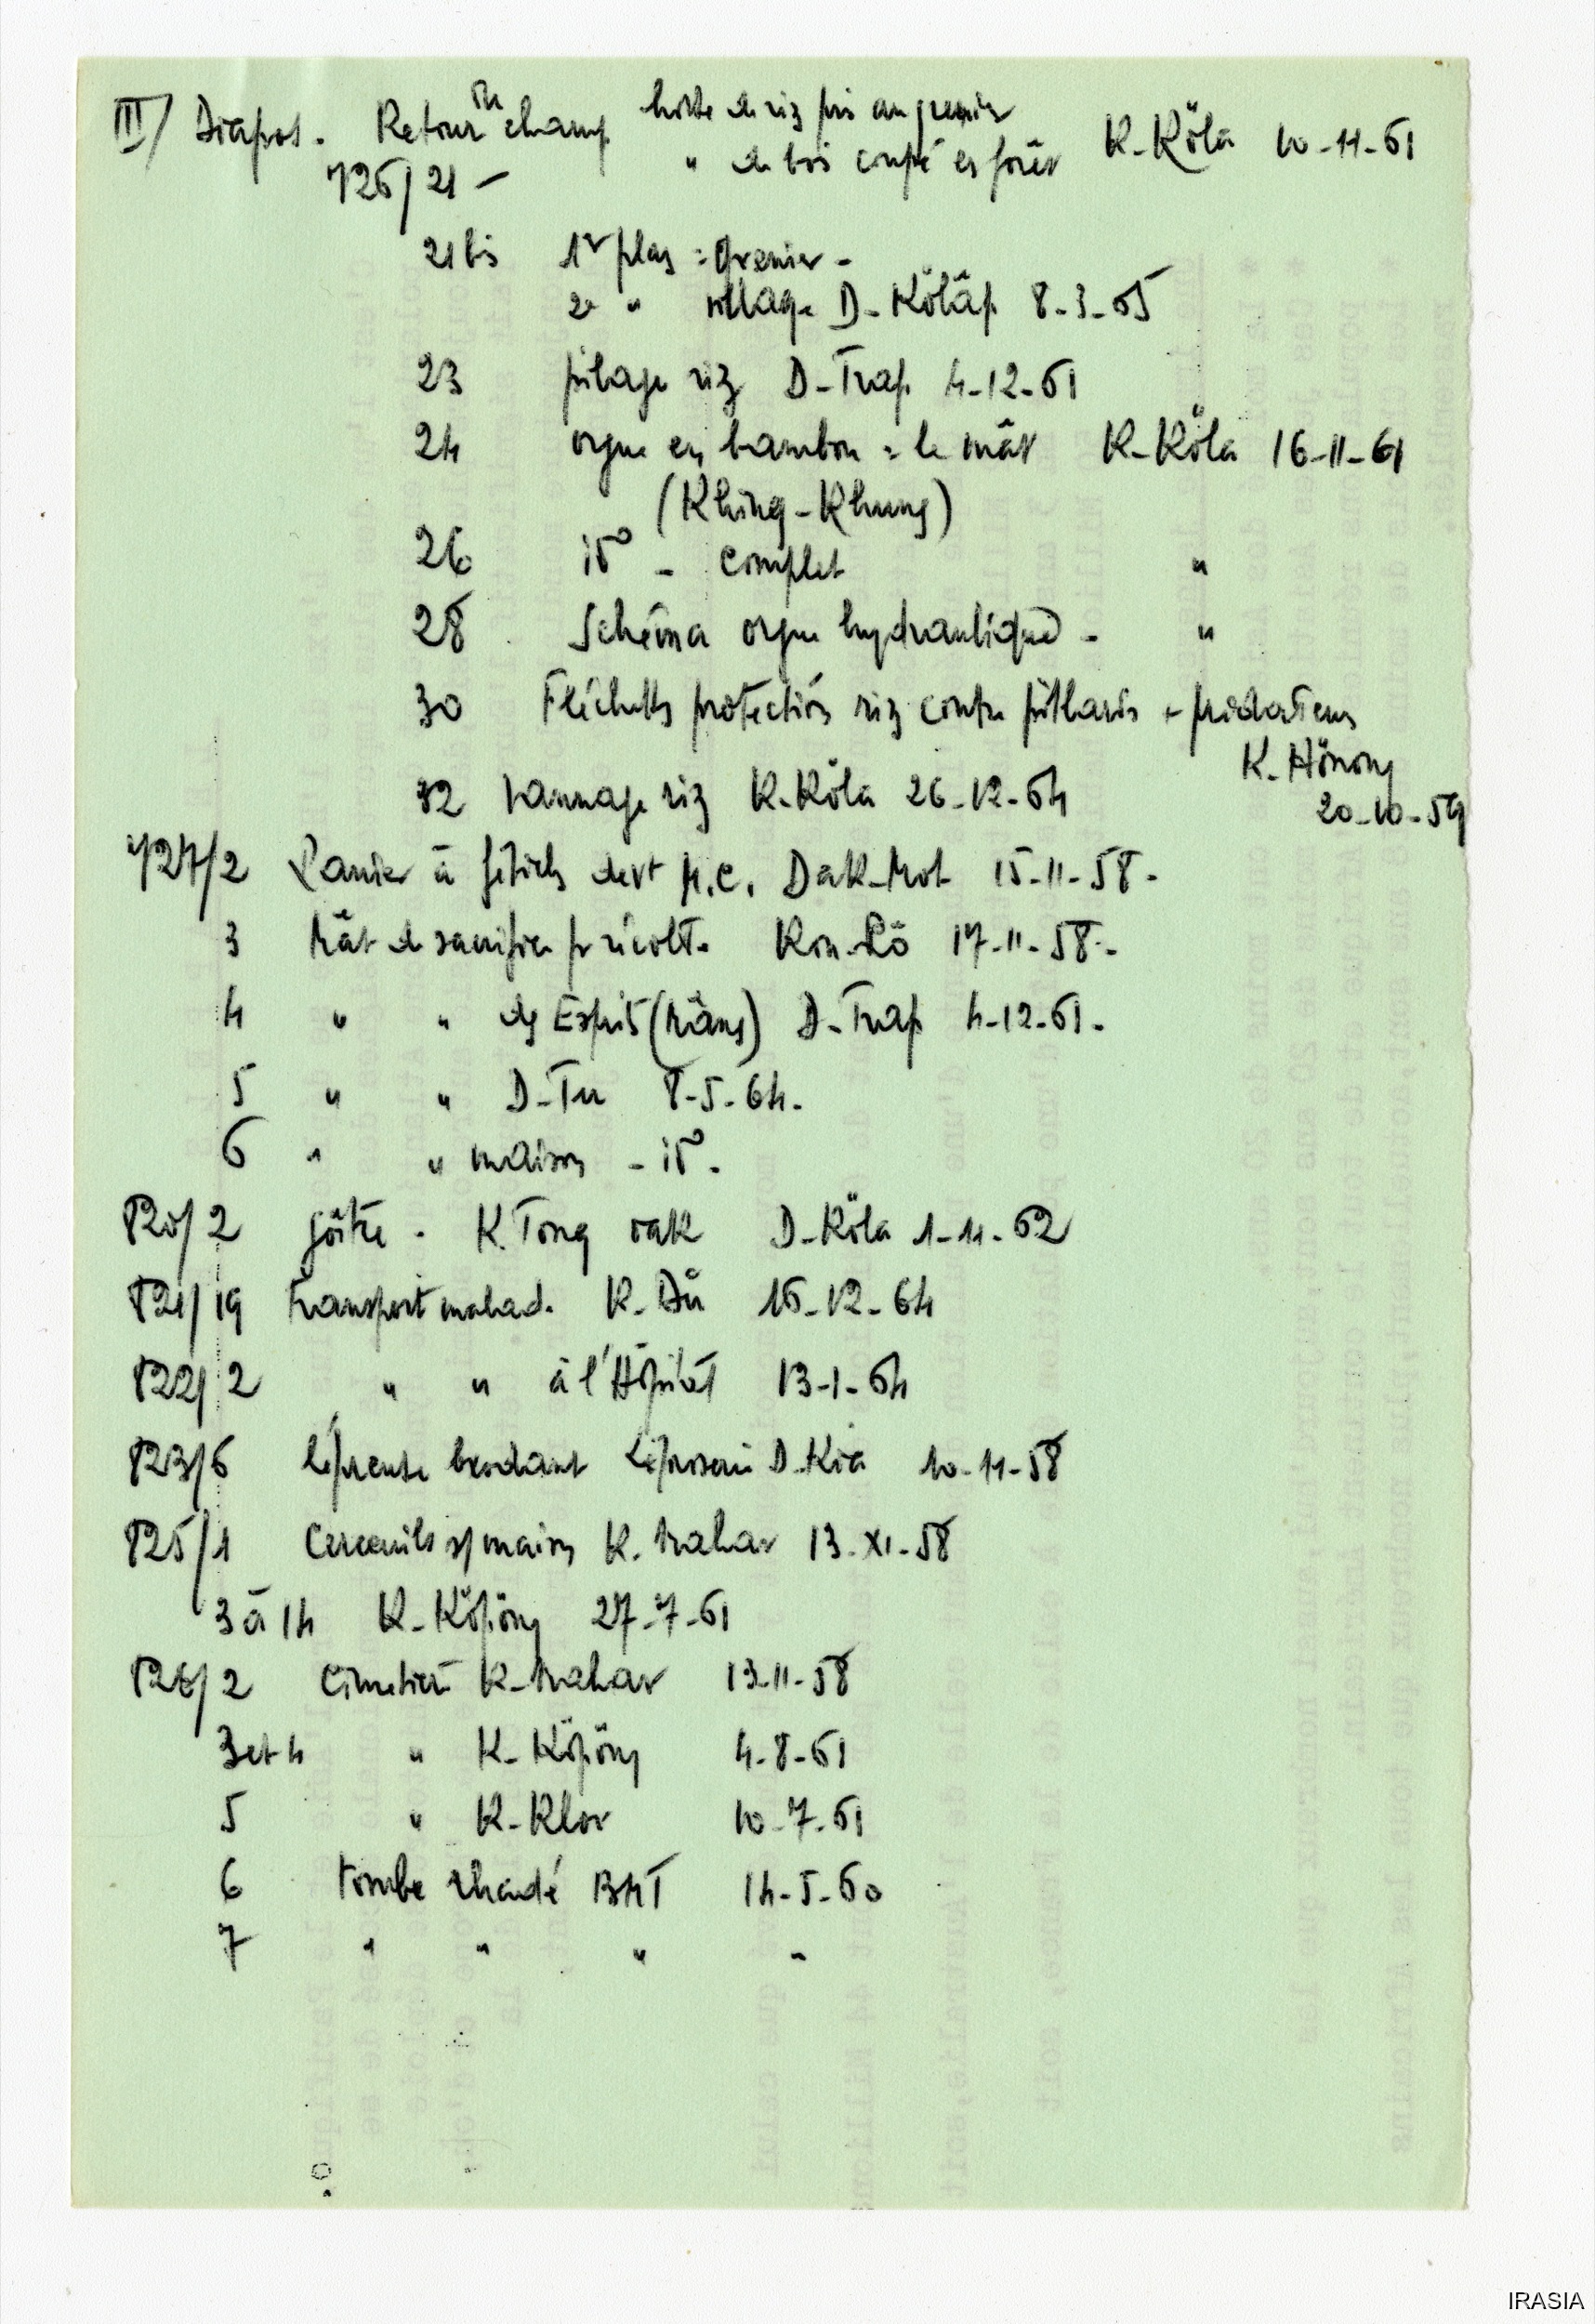 III/ Diapos. Retour du champ hotte de riz pris au grenier K-Köla 10-11-61
726/21 - " de bois coupé en forêt
21 bis 1r plan : grenier -
2e " village D-Kölâp 8-3-65
23 pilage riz D-Trap 4-12-61
24 orgue en bambou : le mât K-Köla 16-11-61
(Khing-Khung)
26 id° - complet "
28 Schéma orgue hydraulique - "
30 Fléchettes protection riz contre pillards + prédateurs
K. Hönong
32 vannage riz K-Köla 26-12-64
20-10-59
727/2 Panier à fétiches devt M.C. Dak-Mot 15-11-58-
3 Mât de sacrifice pr récolte Kon-Lö 17-11-58-
4 " " des Esprits (Mâns) D-Trap 4-12-61-
5 " " D-Tu 8-5-64-
6 " " maison - id°.
820/2 goître - K. Tong rak D-Köla 1-11-62
821/19 transport malade K. Du 16-12-64
822/2 " " à l'Hôpital 13-1-64
823/6 lépreuse brodant Léproserie D-Kia 10-11-58
825/1 Cercueils s/ maison K. Mahar 13-XI-58
3 à 14 K-Köpöng 27-7-61
826/2 Cimetière K-Mahar 13-11-58
3 et 4 " K-Köpöng 4-8-61
5 " K-Klor 10-7-61
6 tombe rhadé BMT 14-5-60
7 " " " "
IRASIA